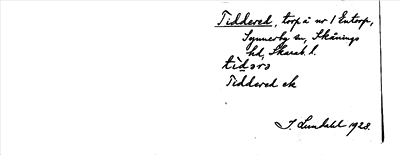 Tiddered, torp å nr 1 Entorp,
Synnerby sn, Skånings
hd, Skarab. l.
tìdərə
Tiddered ek
J. Lundahl 1928.